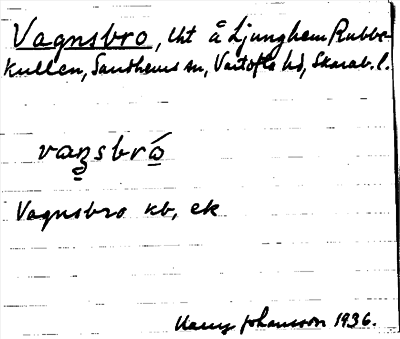 Vagnsbro, lht å Ljunghem Rubbe-
kullen, Sandhems sn, Vartofta hd, Skarab. l.
vaŋsbró
Vagnsbro kb, ek
Harry Johansson 1936.